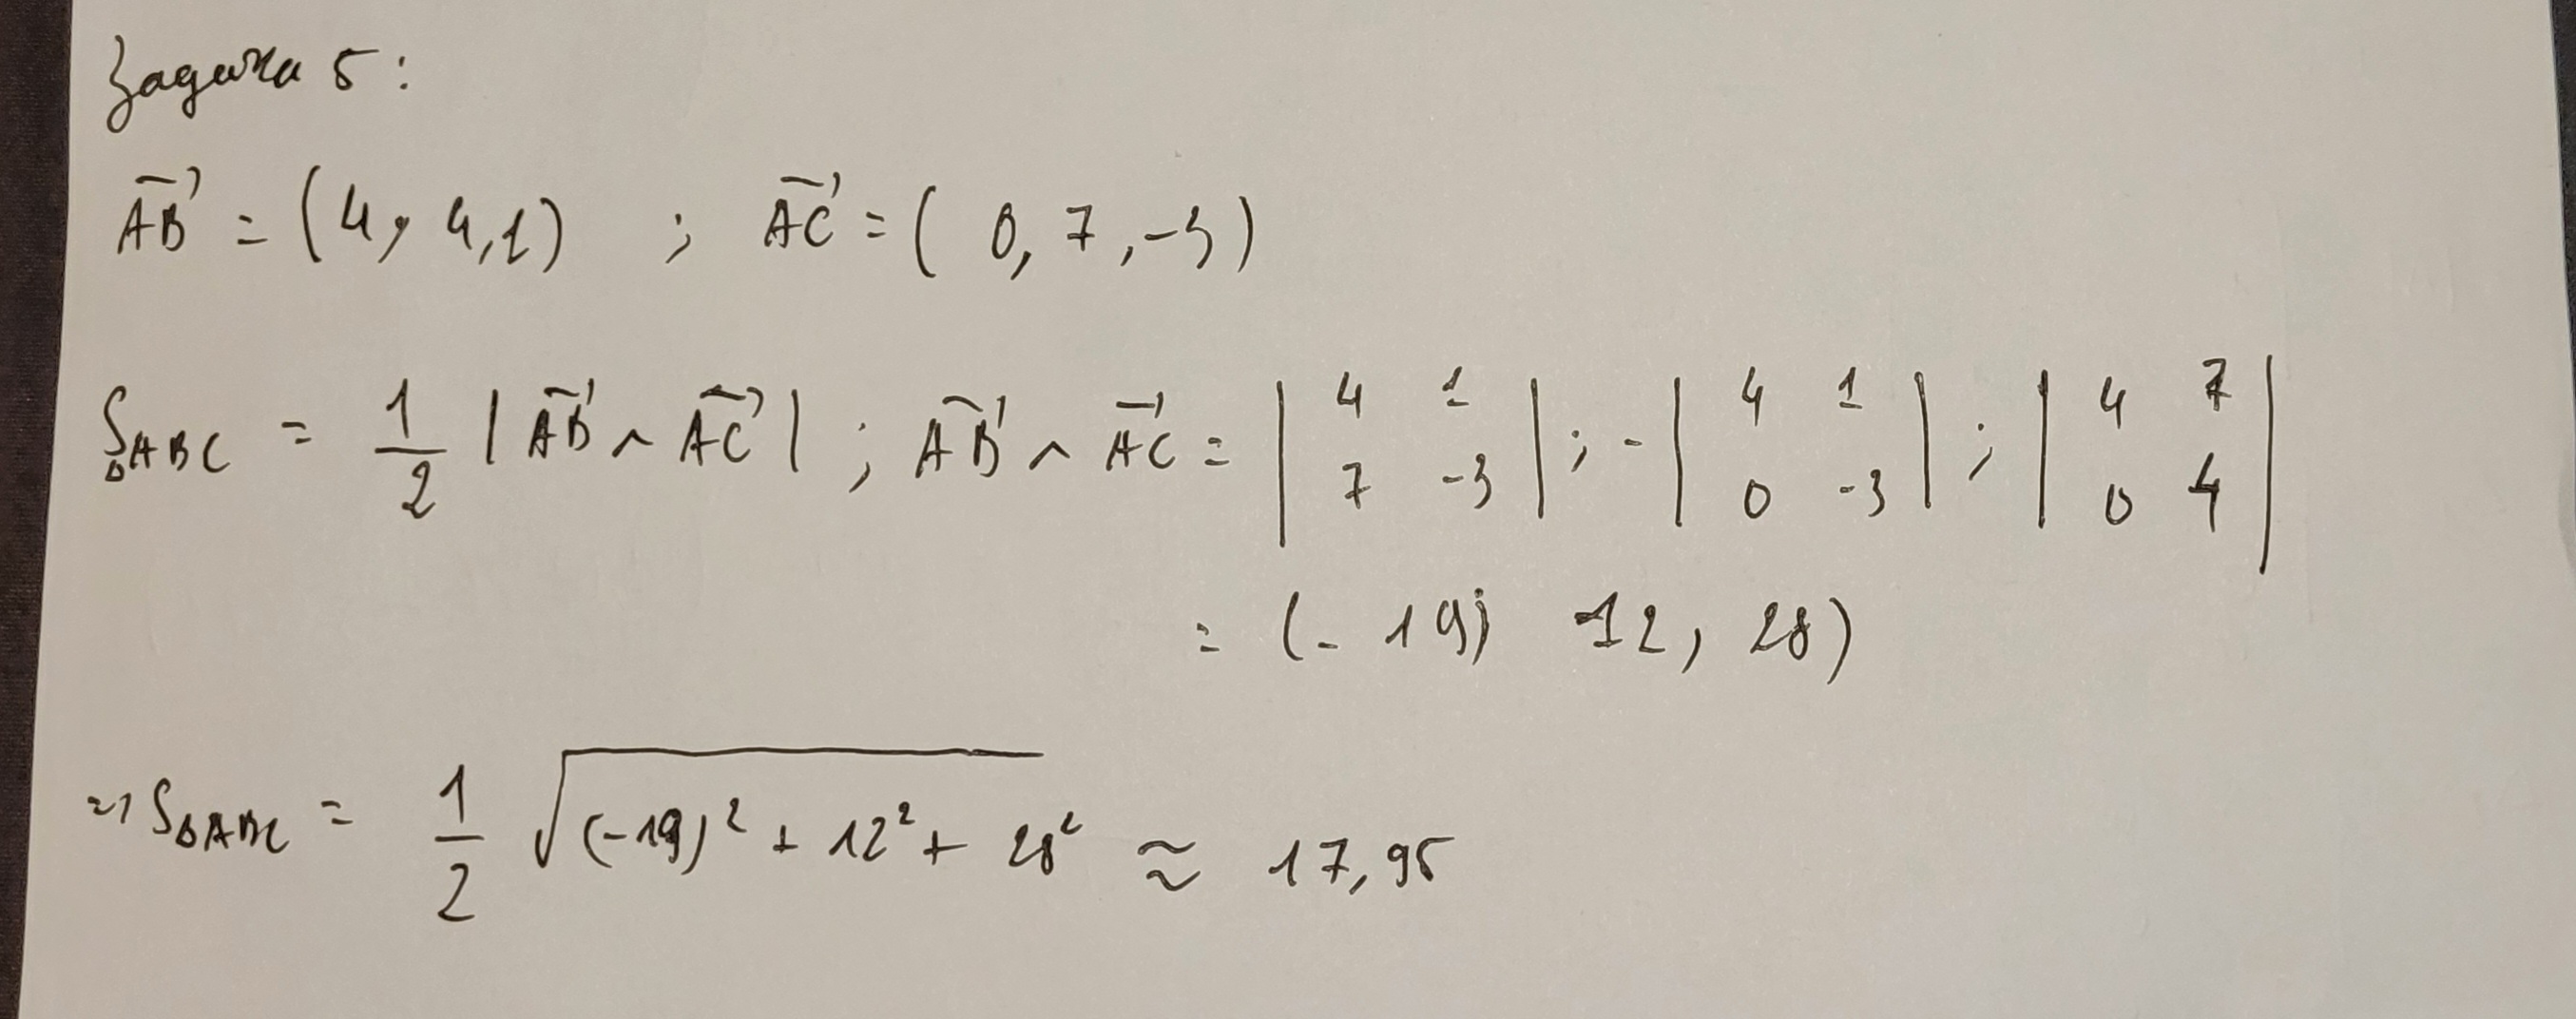 Задача 5:
AB⃗ = (4, 4, 1) ; AC⃗ = ( 0, 7, -3)
S△ABC = 1/2 | AB⃗ ∧ AC⃗ | ; AB⃗ ∧ AC⃗ = | 4 1 / 7 -3 | ; - | 4 1 / 0 -3 | ; | 4 7 / 0 4 |
= (- 19; 12, 28)
=> S△ABC = 1/2 √((-19)² + 12² + 28²) ≈ 17,95